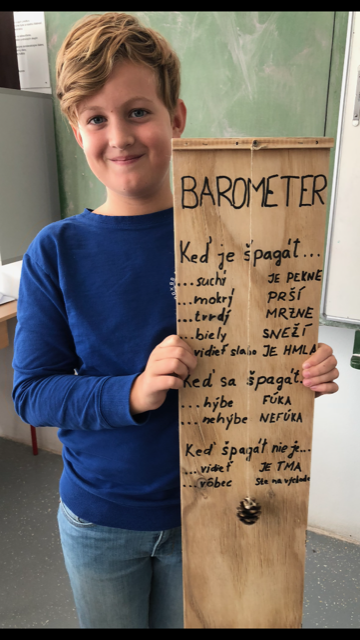 BAROMETER
Keď je špagát...
...suchý JE PEKNE
...mokrý PRŠÍ
...tvrdý MRZNE
...biely SNEŽÍ
...vidieť slabo JE HMLA
Keď sa špagát...
...hýbe FÚKA
...nehýbe NEFÚKA
Keď špagát nie je...
...vidieť JE TMA
...vôbec Ste na východe